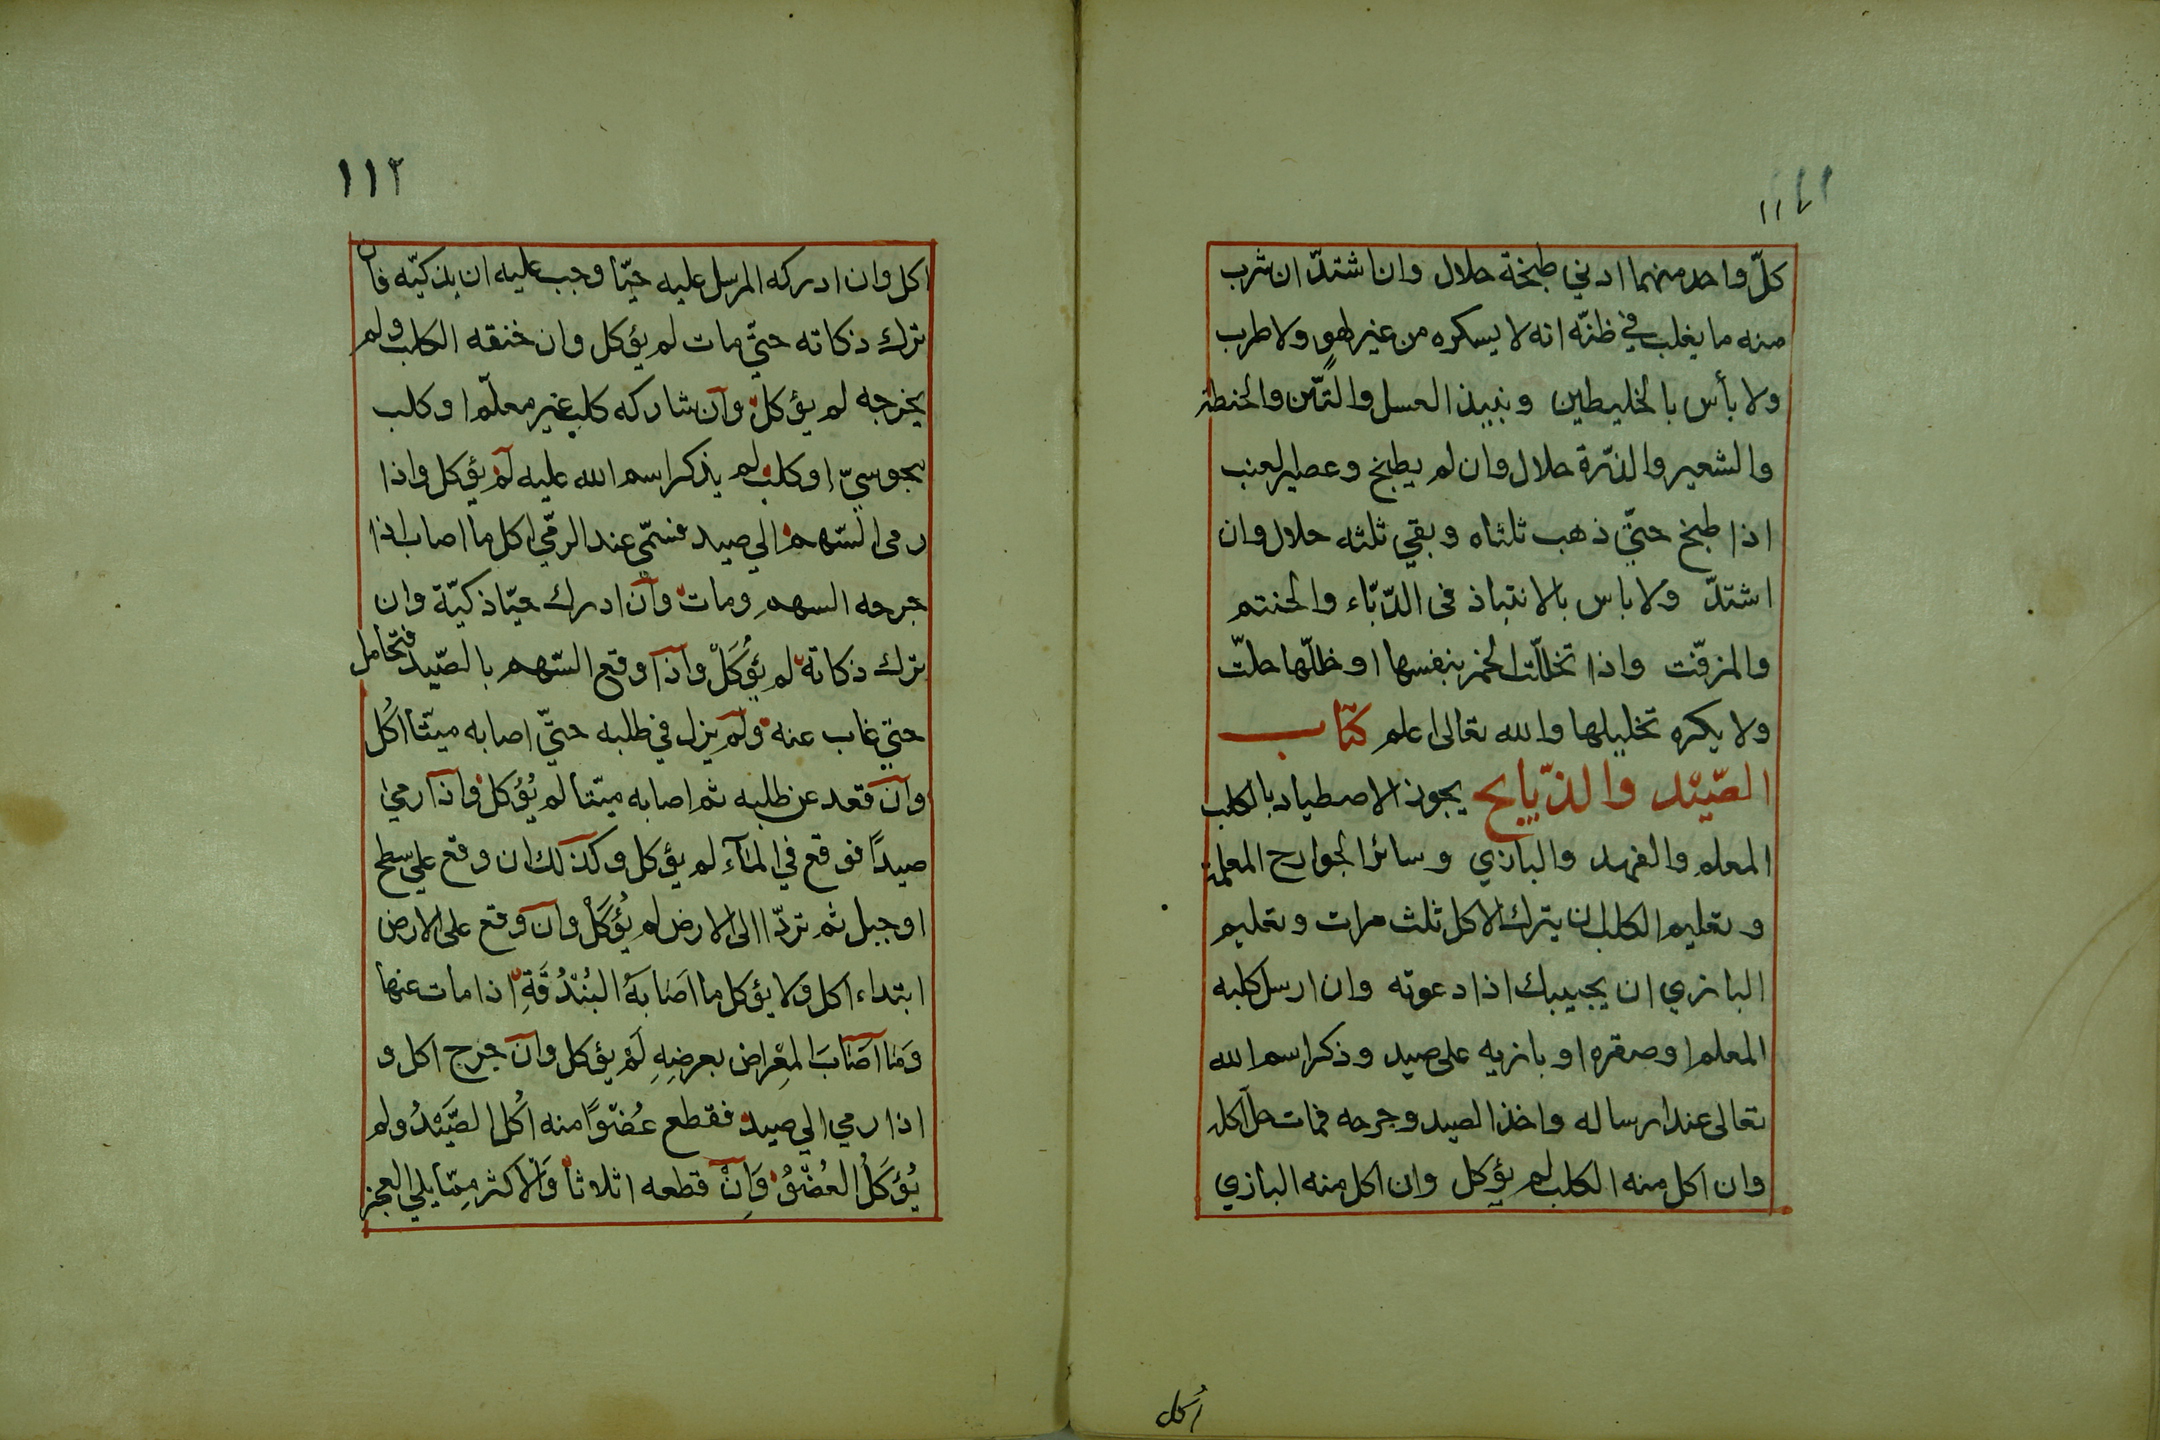 كلّ واحد منهما ادني طبخة حلال وان اشتدّ ان شرب
منه ما يغلب في ظنّه انه لا يسكره من غير لهو ولا طرب
ولا بأس بالخليطين ونبيذ العسل والتّين والحنطة
والشعير والذّرة حلال وان لم يطبخ وعصير لعنب
اذا طبخ حتّي ذهب ثلثاه وبقي ثلثه حلال وان
اشتدّ ولا باس بالانتباذ في الدّبّاء والحنتم
والمزفّت واذا تخلّلت الخمر بنفسها او خلّلها حلّت
ولا يكره تخليلها والله تعالى اعلم كتاب
الصّيد والذّبايح يجوز الاصطياد بالكلب
المعلم والفهد والبازي وسائر الجوارح المعلمة
وتعليم الكلب ان يترك الاكل ثلث مرات وتعليم
البازي ان يجيبك اذا دعوته وان ارسل كلبه
المعلم او صقره او بازيه على صيد وذكر اسم الله
تعالى عند ارساله واخذ الصيد وجرحه فمات حلّ اكله
وان اكل منه الكلب لم يؤكل وان اكل منه البازي
اكل
١١٢
اكل وان ادركه المرسل عليه حيّا وجب عليه ان يذكيّه فان
ترك ذكاته حتّي مات لم يؤكل وان خنقه الكلب ولم
يخرجه لم يؤكل وان شاركه كلب غير معلّم او كلب
مجوسيّ او كلب لم يذكر اسم الله عليه لم يؤكل واذا
رمى السّهم الي صيد فسمّى عند الرمّي اكل ما اصاب اذا
جرحه السهم ومات وان ادرك حيّا ذكيّة وان
ترك ذكاته لم يُؤكَلْ واذا وقع السّهم بالصّيد فتحامل
حتي غاب عنه ولم يزل في طلبه حتّي اصابه ميّتا اُكل
وان قعد عن طلبه ثم اصابه ميّتا لم يُؤكل واذا رمي
صيدًا فوقع في المآء لم يؤكل وكذلك ان وقع علي سطح
او جبل ثم تردّا الى الارض لم يُؤكَلْ وان وقع على الارض
ابتداء اكل ولا يؤكل ما اصَابَهُ البُنْدُقَةِ اذا مات عنها
وَما اصَابَ المِعْراض بعرضِهِ لَمْ يؤكل وان جرح اكل و
اذا رمي الي صيد فقطع عُضْوًا منه اُكل الصَّيْدُ ولم
يُؤكَلُ العُضْوُ وَاِنْ قطعه اثلاثاً وَالاكثر مِمّا يلي العجز